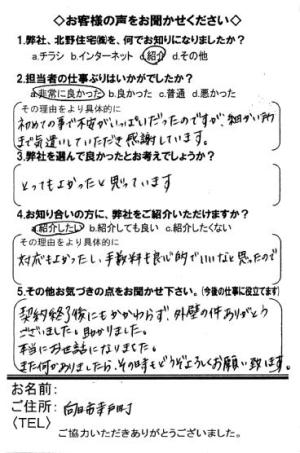 ◇お客様の声をお聞かせください◇
1.弊社、北野住宅㈱を、何でお知りになりましたか？
a.チラシ b.インターネット c.紹介 d.その他
2.担当者の仕事ぶりはいかがでしたか？
a.非常に良かった b.良かった c.普通 d.悪かった
その理由をより具体的に
初めての事で不安がいっぱいだったのですが、細かい所
まで気遣いしていただき感謝しています。
3.弊社を選んで良かったとお考えでしょうか？
とってもよかったと思っています
4.お知り合いの方に、弊社をご紹介いただけますか？
a.紹介したい b.紹介しても良い c.紹介したくない
その理由をより具体的に
対応もよかったし、手数料も良心的でいいなと思ったので
5.その他お気づきの点をお聞かせ下さい。(今後の仕事に役立てます)
契約終了後にもかかわらず、外壁の件ありがとう
ございました。助かりました。
本当にお世話になりました。
また何かありましたら、その時もどうぞよろしくお願い致します。
お名前:
ご住所: 向日市寺戸町
〈TEL〉
ご協力いただきありがとうございました。